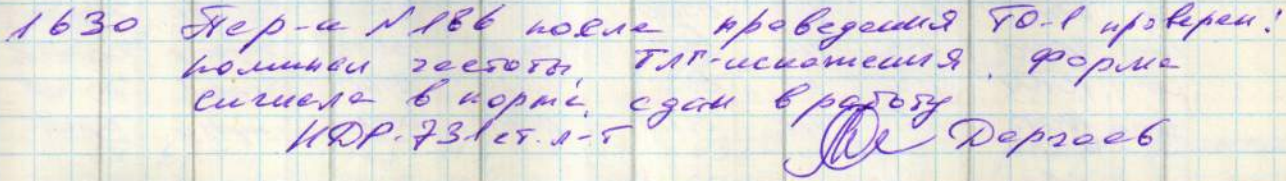 1630 Пер-к №186 после проведения ТО-1 проверен:
номинал частоты, ТЛГ-искажения, форма
сигнала в норме, сдан в работу
НДР-731 ст. л-т Дергаев